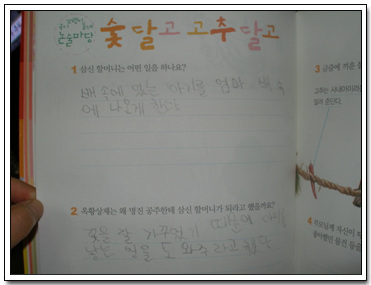 논술마당
숯 달고 고추 달고
1 삼신 할머니는 어떤 일을 하나요?
배 속에 있는 아기를 엄마 배 속
에 나오게 한다
2 옥황상제는 왜 명진 공주한테 삼신 할머니가 되라고 했을까요?
꽃을 잘 가꾸었기 때문에 아기
낳는 일을 도와주라고 한다
3 금줄에 끼운
그것는 사내아이
4 부모님께 자신이
좋아했던 물건 등을